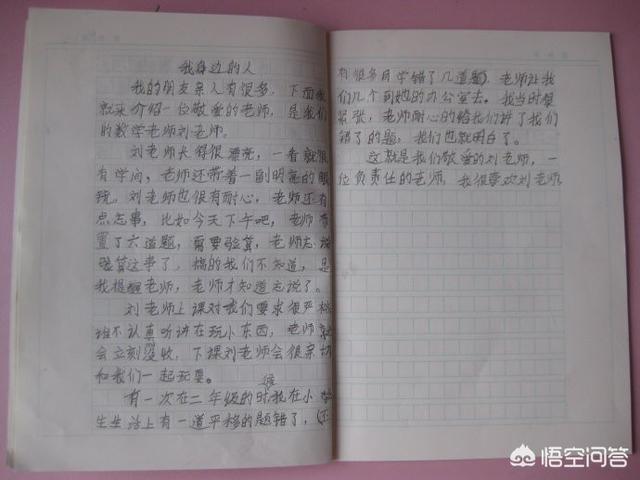 我身边的人
我的朋友亲人有很多,下面我
就来介绍一位敬爱的老师,是我们
的数学老师刘老师。
刘老师长得很漂亮,一看就很
有学问,老师还带着一副明亮的眼
镜。刘老师也很有耐心,老师还有
点忘事,比如今天下午吧,老师布
置了六道题,需要验算,老师忘说
验算这事了,搞的我们不知道,是
我提醒老师,老师才知道忘说了。
刘老师上课对我们要求很严格
班不认真听讲在玩小东西,老师就
会立刻没收,下课刘老师会很亲切
和我们一起玩耍。
有一次在二年级的时候我在小学
生生活上有一道平移的题错了,(还
有很多同学错了几道题)老师让我
们几个到她的办公室去。我当时很
紧张,老师耐心的给我们讲了我们
错了的题,我们也就明白了。
这就是我们敬爱的刘老师,一
位负责任的老师,我很喜欢刘老师
悟空问答